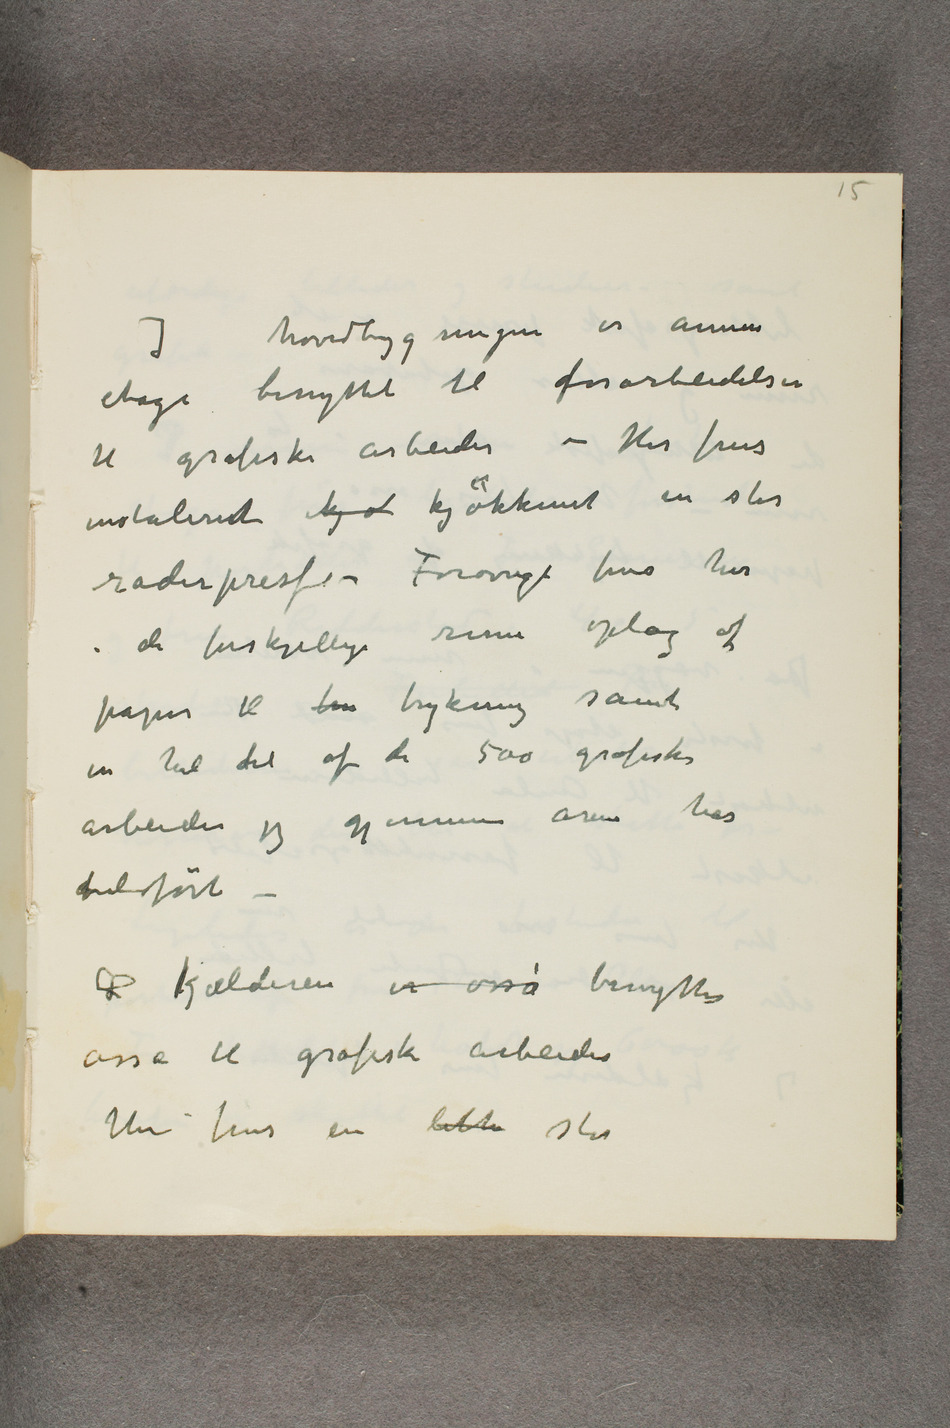 15
I hovedbygningen er annen
etage benyttet til forarbeidelser
til grafiske arbeider – Her fins
instaleret kjøkkenet en stor
raderpresse – Forøvrigt fins her
i de forskjellige rume oplag af
papir til trykning samt
en hel del af de 500 grafiske
arbeider jeg gjennem årene har
udført –
Kjælderen er også benyttes
også til grafiske arbeider
Her fins en lette stor